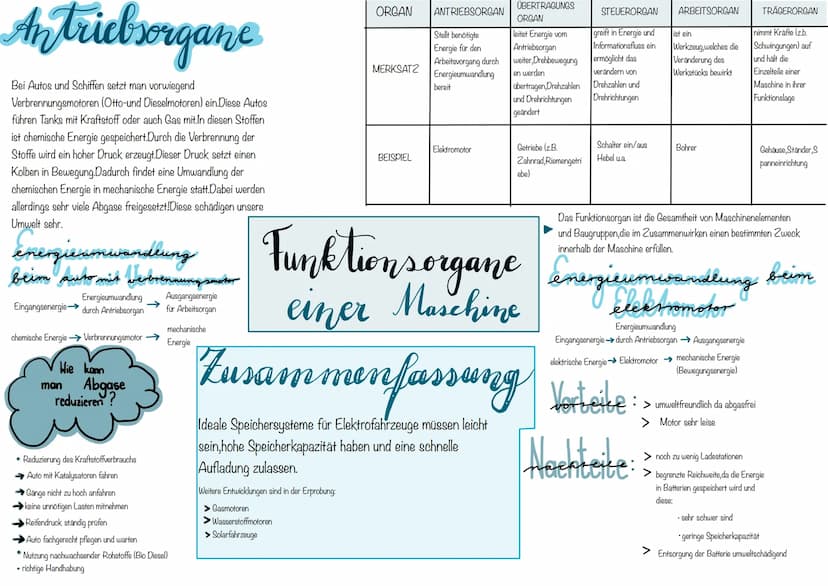 Antriebsorgane
Bei Autos und Schiffen setzt man vorwiegend
Verbrennungsmotoren (Otto-und Dieselmotoren) ein.Diese Autos
führen Tanks mit Kraftstoff oder auch Gas mit.In diesen Stoffen
ist chemische Energie gespeichert.Durch die Verbrennung der
Stoffe wird ein hoher Druck erzeugt.Dieser Druck setzt einen
Kolben in Bewegung.Dadurch findet eine Umwandlung der
chemischen Energie in mechanische Energie statt.Dabei werden
allerdings sehr viele Abgase freigesetzt!Diese schädigen unsere
Umwelt sehr.
Energieumwandlung
beim Auto mit Verbrennungsmotor
Eingangsenergie → Energieumwandlung durch Antriebsorgan → Ausgangsenergie für Arbeitsorgan
chemische Energie → Verbrennungsmotor → mechanische Energie
Wie kann
man Abgase
reduzieren?
• Reduzierung des Kraftstoffverbrauchs
→ Auto mit Katalysatoren fahren
→ Gänge nicht zu hoch anfahren
→ keine unnötigen Lasten mitnehmen
→ Reifendruck ständig prüfen
→ Auto fachgerecht pflegen und warten
• Nutzung nachwachsender Rohstoffe (Bio Diesel)
• richtige Handhabung
ORGAN ANTRIEBSORGAN ÜBERTRAGUNGS ORGAN STEUERORGAN ARBEITSORGAN TRÄGERORGAN
MERKSATZ
Stellt benötigte
Energie für den
Arbeitsvorgang durch
Energieumwandlung
bereit
leitet Energie vom
Antriebsorgan
weiter,Drehbewegung
en werden
übertragen,Drehzahlen
und Drehrichtungen
geändert
greift in Energie und
Informationsfluss ein
ermöglicht das
verändern von
Drehzahlen und
Drehrichtungen
ist ein
Werkzeug,welches die
Veränderung des
Werkstücks bewirkt
nimmt Kräfte (z.b.
Schwingungen) auf
und hält die
Einzelteile einer
Maschine in ihrer
Funktionslage
BEISPIEL
Elektromotor
Getriebe (z.B.
Zahnrad,Riemengetri
ebe)
Schalter ein/aus
Hebel u.a.
Bohrer
Gehäuse,Ständer,S
panneinrichtung
Funktionsorgane
einer Maschine
Das Funktionsorgan ist die Gesamtheit von Maschinenelementen
und Baugruppen,die im Zusammenwirken einen bestimmten Zweck
innerhalb der Maschine erfüllen.
Energieumwandlung beim
Elektromotor
Eingangsenergie → Energieumwandlung durch Antriebsorgan → Ausgangsenergie
elektrische Energie → Elektromotor → mechanische Energie (Bewegungsenergie)
Zusammenfassung
Ideale Speichersysteme für Elektrofahrzeuge müssen leicht
sein,hohe Speicherkapazität haben und eine schnelle
Aufladung zulassen.
Weitere Entwicklungen sind in der Erprobung:
> Gasmotoren
> Wasserstoffmotoren
> Solarfahrzeuge
Vorteile :
> umweltfreundlich da abgasfrei
> Motor sehr leise
Nachteile :
> noch zu wenig Ladestationen
> begrenzte Reichweite,da die Energie
in Batterien gespeichert wird und
diese:
- sehr schwer sind
- geringe Speicherkapazität
> Entsorgung der Batterie umweltschädigend